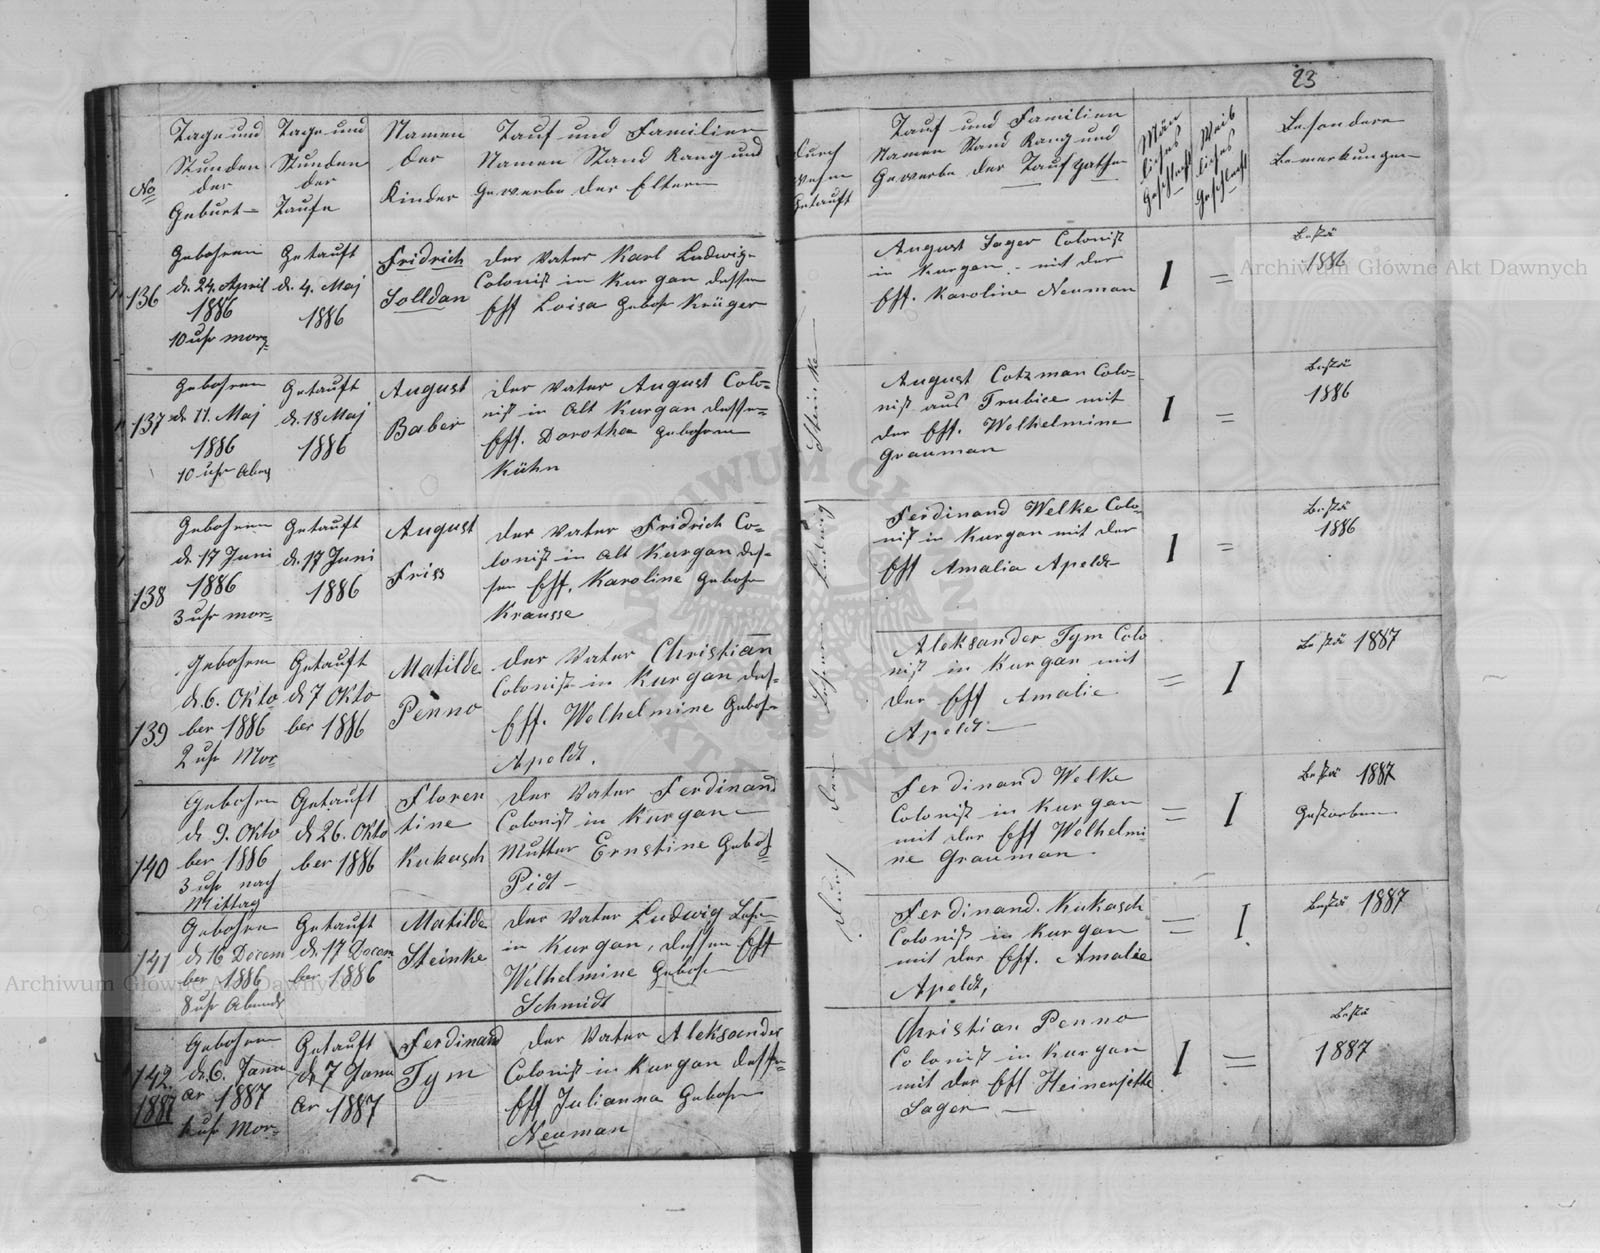 23
No
Tage und
Stunden
der
Geburt
Tage und
Stunden
der
Taufe
Namen
der
Kinder
Tauf und Familien
Namen Stand Rang und
Gewerbe der Eltern
durch
wehm
Getauft
Tauf und Familien
Namen Stand Rang und
Gewerbe der Taufpathen
Män
liches
Geschlecht
Weib
liches
Geschlecht
Besondere
Bemerkungen
136
Gebohren
d. 24. April
1886
10 uhr morg
Getauft
d. 4. Maj
1886
Fridrich
Solldan
der Vater Karl Ludwig
Colonist in Kurgan dessen
Eff Loisa Geboh Krüger
August Sager Colonist
in Kurgan mit der
Eff. Karoline Neuman
I =
1886
137
Gebohren
d. 11. Maj
1886
10 uhr Abm
Getauft
d. 18 Maj
1886
August
Baber
der Vater August Colo=
nist in Alt Kurgan desse=
Eff. Dorothea Gebohren
Kühn
August Cotzman Colo-
nist aus Trubice mit
der Eff. Welhelmine
Grauman
I =
1886
138
Gebohren
d. 17 Juni
1886
3 uhr mor=
Getauft
d. 17 Juni
1886
August
Friss
der Vater Fridrich Co-
lonist in Alt Kurgan des-
sen Eff. Karoline Geboh
Krausse
Ferdinand Welke Colo-
nist in Kurgan mit der
Eff Amalia Apeldt
I =
1886
139
Gebohren
d. 6. Okto
ber 1886
2 uhr Mor=
Getauft
d 7 Okto
ber 1886
Matilde
Penno
der Vater Christian
Colonist in Kurgan des-
Eff. Welhelmine Geboh
Apoldt.
Aleksander Tym Colo
nist in Kurgan mit
der Eff Amalie
Apoldt
= I
1887
140
Gebohren
d. 9. Okto
ber 1886
3 uhr nach
Mittag
Getauft
d. 26. Okto
ber 1886
Floren
tine
Kukasch
der Vater Ferdinand
Colonist in Kurgan
Mutter Ernstine Geboh
Pidt
Ferdinand Welke
Colonist in Kurgan
mit der Eff Welhelmi
ne Grauman
= I
1887
Gestorben
141
Gebohren
d. 16 Decem
ber 1886
8 uhr Abends
Getauft
d. 17 Decem
ber 1886
Matilde
Steinke
der Vater Ludwig
in Kurgan, dessen Eff
Welhelmine Geboh
Schmidt
Ferdinand. Kukasch
Colonist in Kurgan
mit der Eff. Amalie
Apoldt,
= I
1887
142
1887
Gebohren
d. 6. Janu
ar 1887
uhr Mor=
Getauft
d. 7 Janu
ar 1887
Ferdinand
Tym
der Vater Aleksander
Colonist in Kurgan desse=
Eff Julianna Geboh
Neuman
Christian Penno
Colonist in Kurgan
mit der Eff Heinerjette
Sager
I =
1887
Durch den Ludwig Steinke
Archiwum Główne Akt Dawnych
Archiwum Główne Akt Dawnych